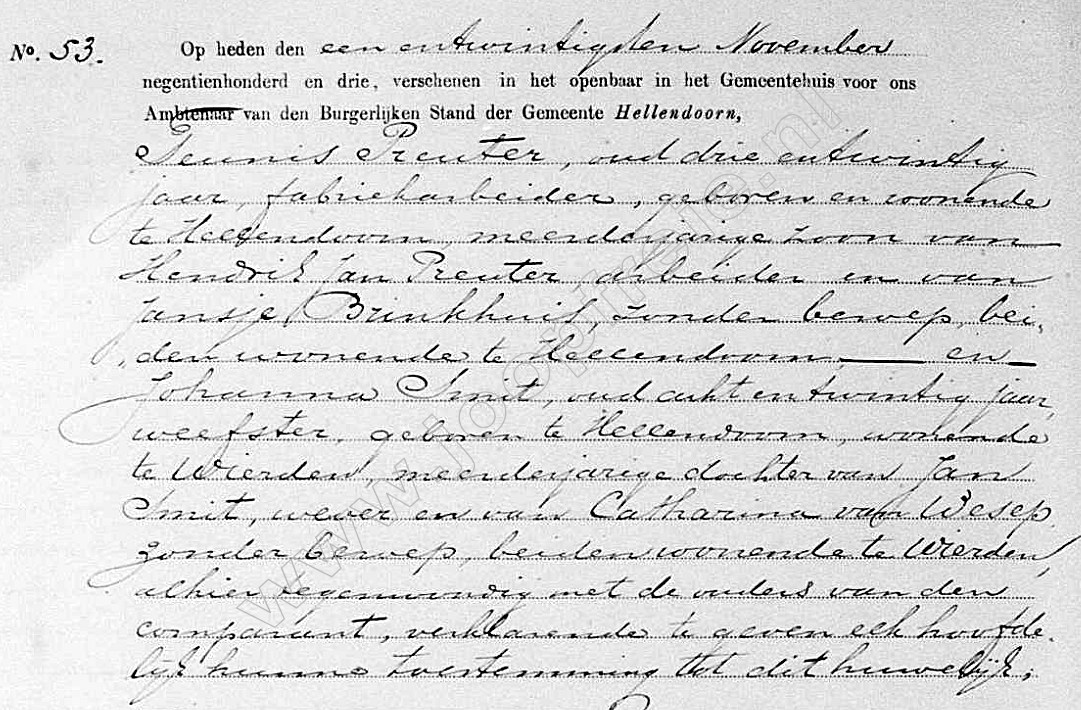 No. 53. Op heden den een entwintigsten November
negentienhonderd en drie, verschenen in het openbaar in het Gemeentehuis voor ons
Ambtenaar van den Burgerlijken Stand der Gemeente Hellendoorn,
Teunis Preuter, oud drie entwintig
jaar, fabriekarbeider, geboren en wonende
te Hellendoorn, meerderjarige zoon van
Hendrik Jan Preuter arbeider en van
Jansje Brinkhuis, zonder beroep, bei-
den wonende te Hellendoorn — en —
Johanna Smit, oud acht en twintig jaar,
weefster, geboren te Hellendoorn, wonende
te Wierden, meerderjarige dochter van Jan
Smit, wever en van Catharina van Wesep
zonder beroep, beiden wonende te Wierden,
alhier tegenwoordig met de ouders van den
comparant, verklarende te geven elk hoofde-
lijk hunne toestemming tot dit huwelijk;
www.jooprede.nl